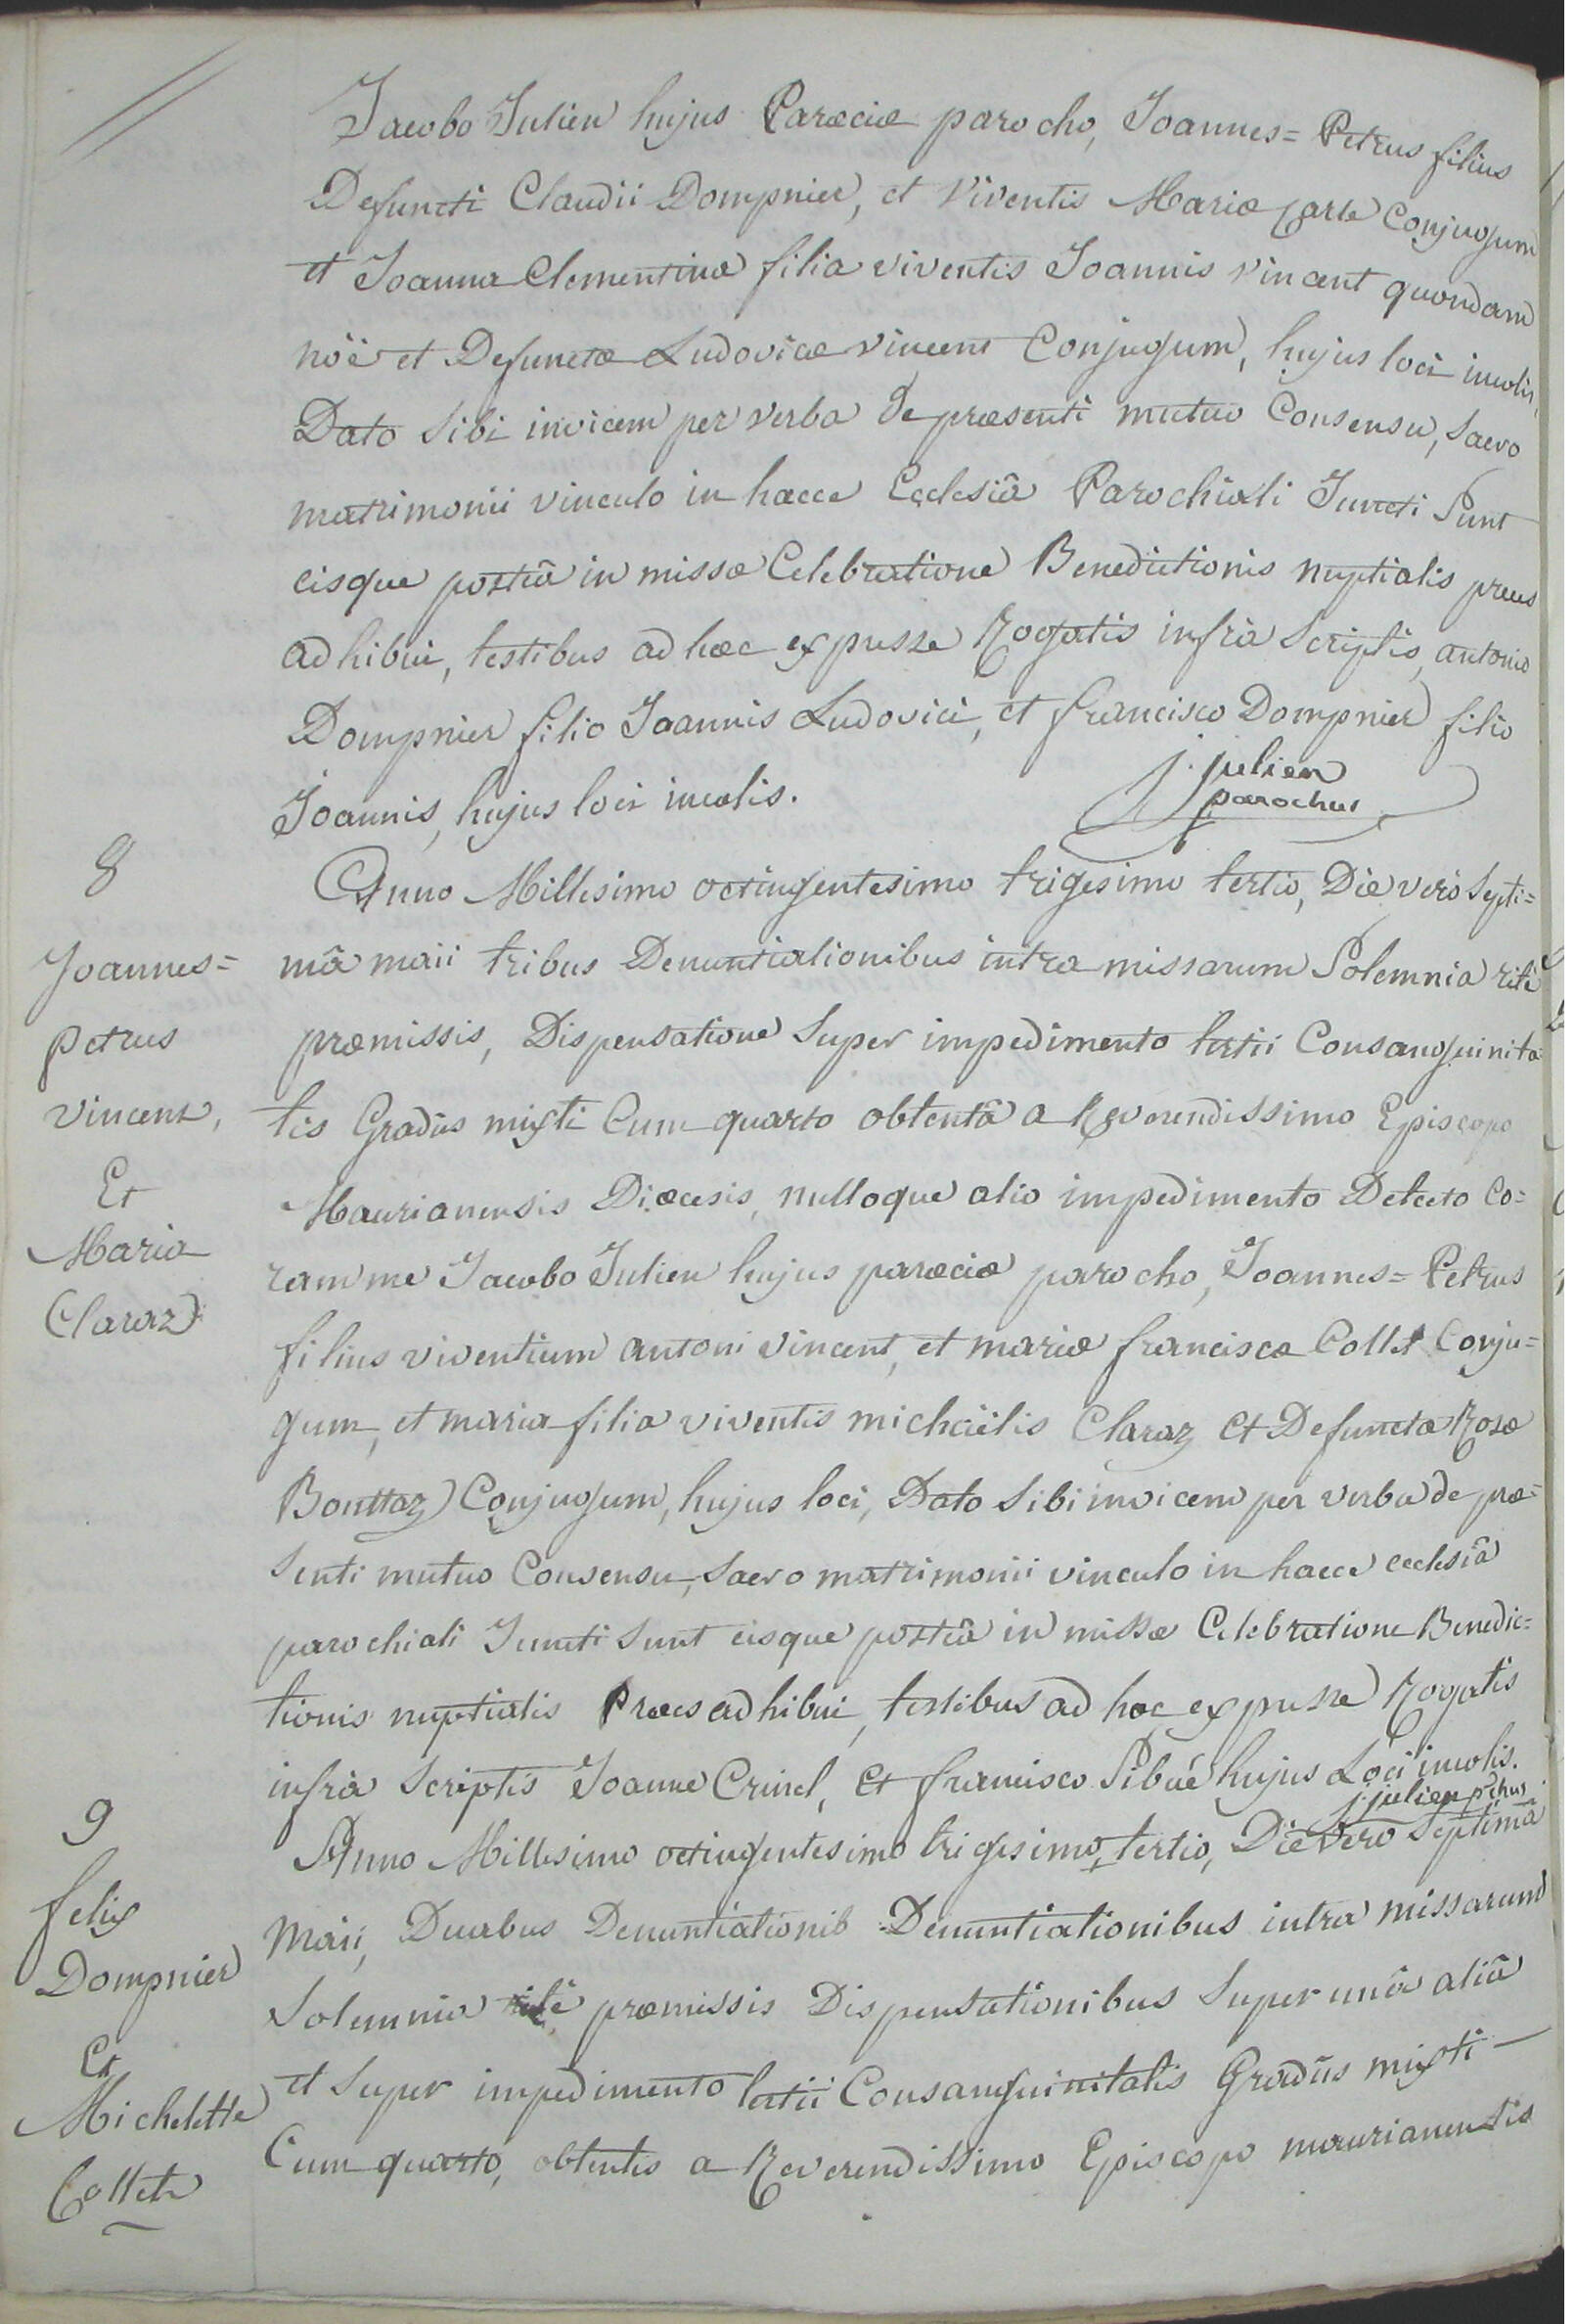 Jacobo Julien hujus Parœciæ parocho, Joannes= Petrus filius
Defuncti Claudii Dompnier, et viventis Mariæ Carle Conjugum
et Joanna Clementina filia viventis Joannis vincent quondam
noë et Defunctæ Ludovicæ vincent Conjugum, hujus loci incolis,
Dato Sibi invicem per verba de præsenti mutuo Consensu, Sacro
matrimonii vinculo in hacce Ecclesiâ Parochiali Juncti Sunt
eisque posteâ in missæ Celebratione Benedictionis nuptialis preces
adhibui, testibus ad hæc expresse Rogatis infrà Scriptis, antonio
Dompnier filio Joannis Ludovici, et francisco Dompnier filio
Joannis, hujus loci incolis.
j. julien
parochus
8
Joannes=
petrus
vincent,
Et
Maria
Claraz
Anno Millesimo octingentesimo trigesimo tertio, Die verò Septi=
mâ maii tribus Denuntiationibus intra missarum Solemnia ritè
præmissis, Dispensatione Super impedimento tertii Consanguinita=
tis Gradûs mixti Cum quarto obtentâ a Reverendissimo Episcopo
Maurianensis Diœcesis, nulloque alio impedimento Detecto Co=
ram me Jacobo Julien hujus parœciæ parocho, Joannes= Petrus
filius viventium antoni vincent, et mariæ franciscæ Collet Conju=
gum, et maria filia viventis michaëlis Claraz et Defunctæ Rosæ
Bouttaz Conjugum, hujus loci, Dato Sibi invicem per verba de præ=
Senti mutuo Consensu, Sacro matrimonii vinculo in hacce ecclesiâ
parochiali Juncti Sunt eisque posteâ in missæ Celebratione Benedic=
tionis nuptialis Preces adhibui, testibus ad hoc expresse Rogatis
infrà Scriptis Joanne Crinel, et francisco Sibuë hujus Loci incolis.
j. julien pchus
9
felix
Dompnier
Et
Michelette
Collet
Anno Millesimo octingentesimo trigesimo tertio, Die vero Septimâ
Maii, Duabus Denuntiationib Denuntiationibus intra missarum
Solemnia ritè præmissis Dispensationibus Super unâ aliâ
et Super impedimento tertii Consanguinitatis Gradûs mixti
Cum quarto, obtentis a Reverendissimo Episcopo maurianensis